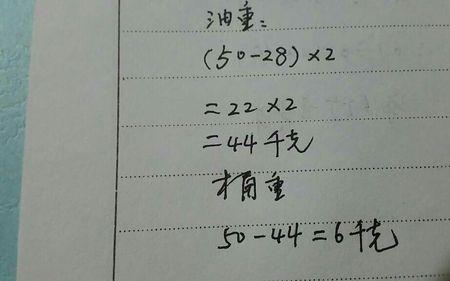 油重:
(50-28)×2
=22×2
=44千克
桶重
50-44=6千克